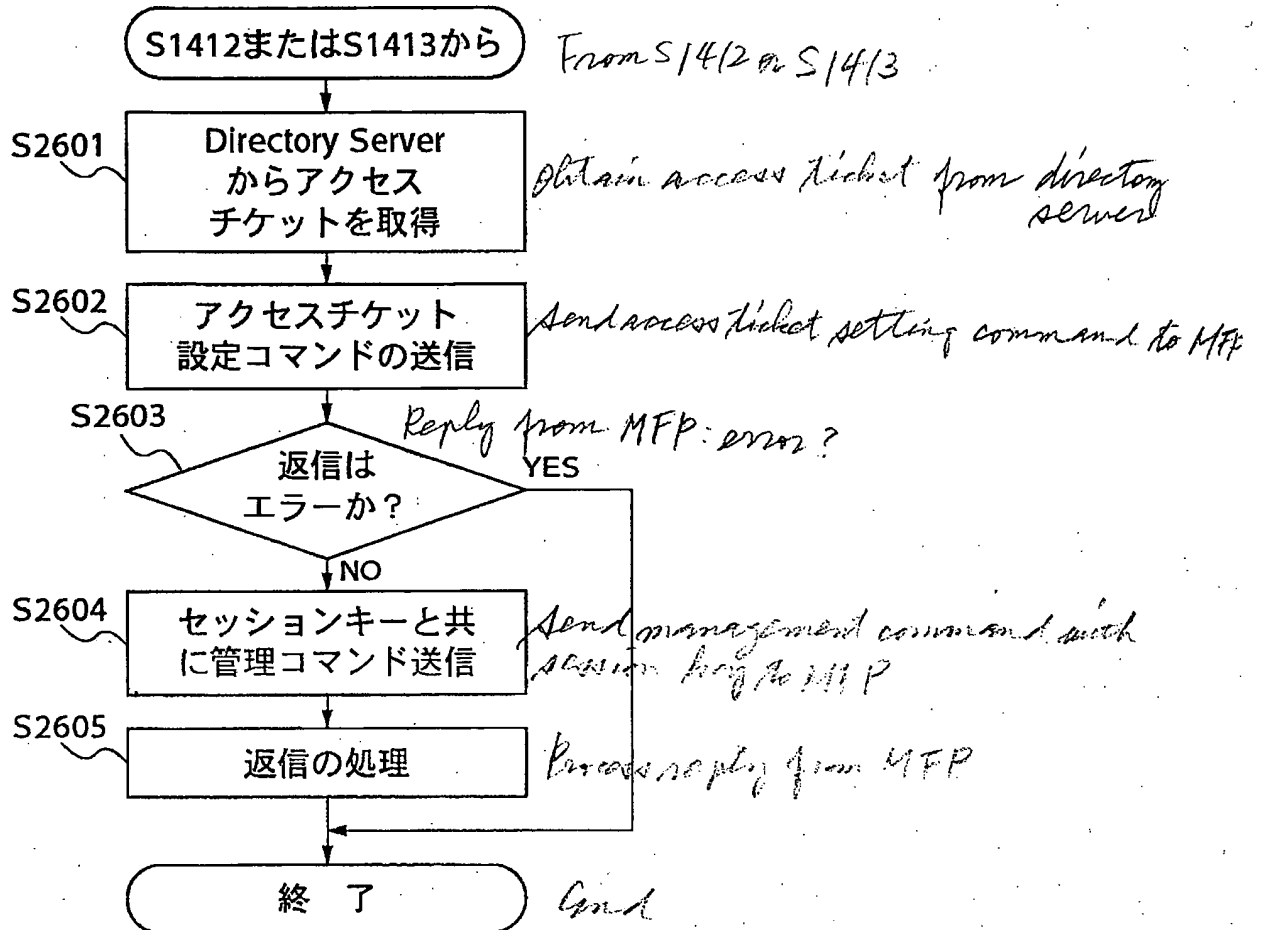 S1412またはS1413から
From S1412 or S1413
S2601
Directory Server
からアクセス
チケットを取得
Obtain access ticket from directory
server
S2602
アクセスチケット
設定コマンドの送信
Send access ticket setting command to MFP
S2603
Reply from MFP: error?
返信は
エラーか?
YES
NO
S2604
セッションキーと共
に管理コマンド送信
Send management command with
session key to MFP
S2605
返信の処理
Process reply from MFP
終 了
End